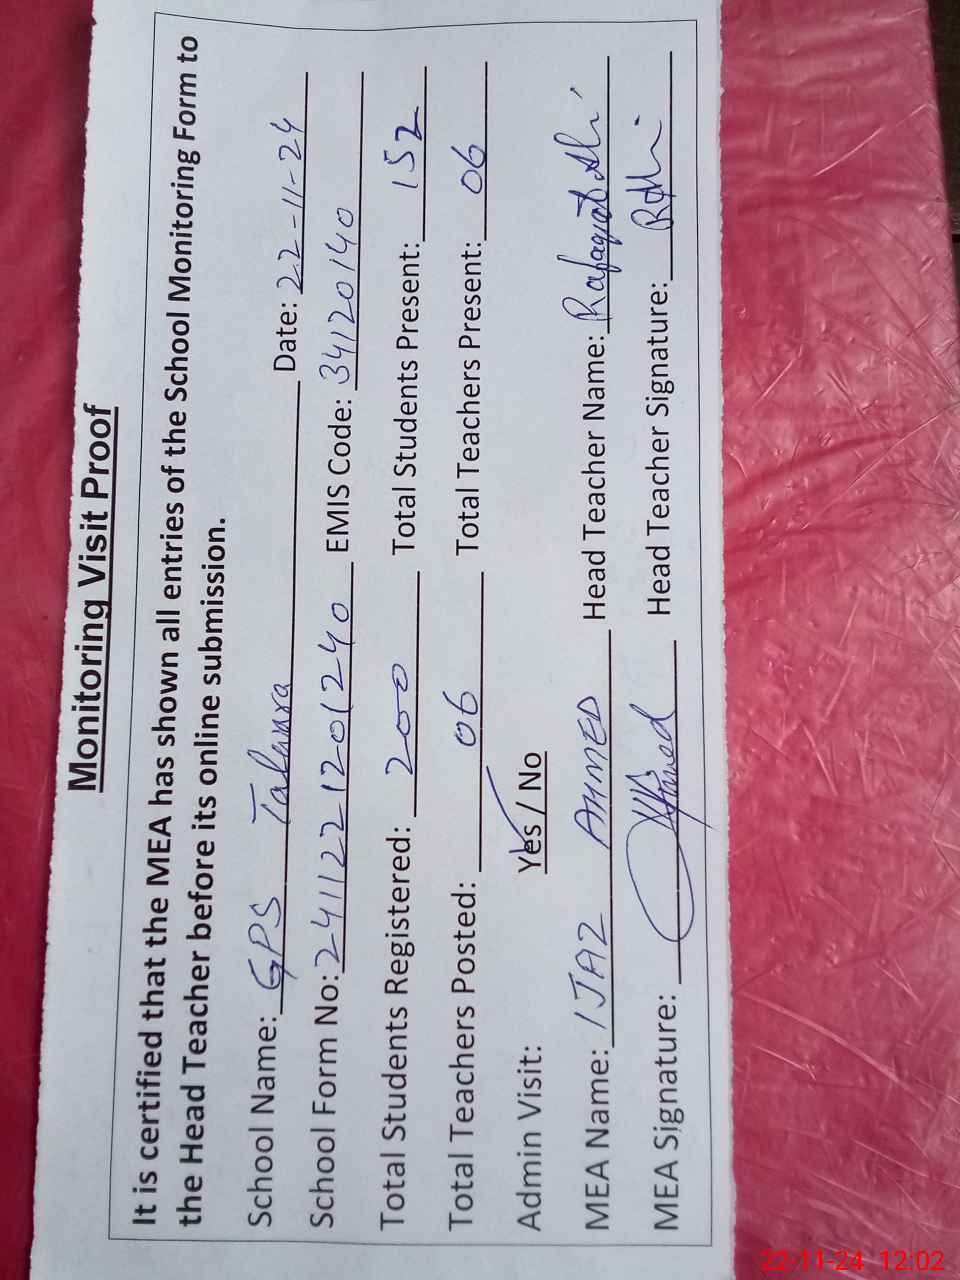 Monitoring Visit Proof
It is certified that the MEA has shown all entries of the School Monitoring Form to
the Head Teacher before its online submission.
School Name: GPS Talanra Date: 22-11-24
School Form No: 2411221201240 EMIS Code: 34120140
Total Students Registered: 200 Total Students Present: 152
Total Teachers Posted: 06 Total Teachers Present: 06
Admin Visit: Yes / No
MEA Name: IJAZ AHMED Head Teacher Name: Rafaqat Ali
MEA Signature: Ahmed Head Teacher Signature:
22-11-24 12:02